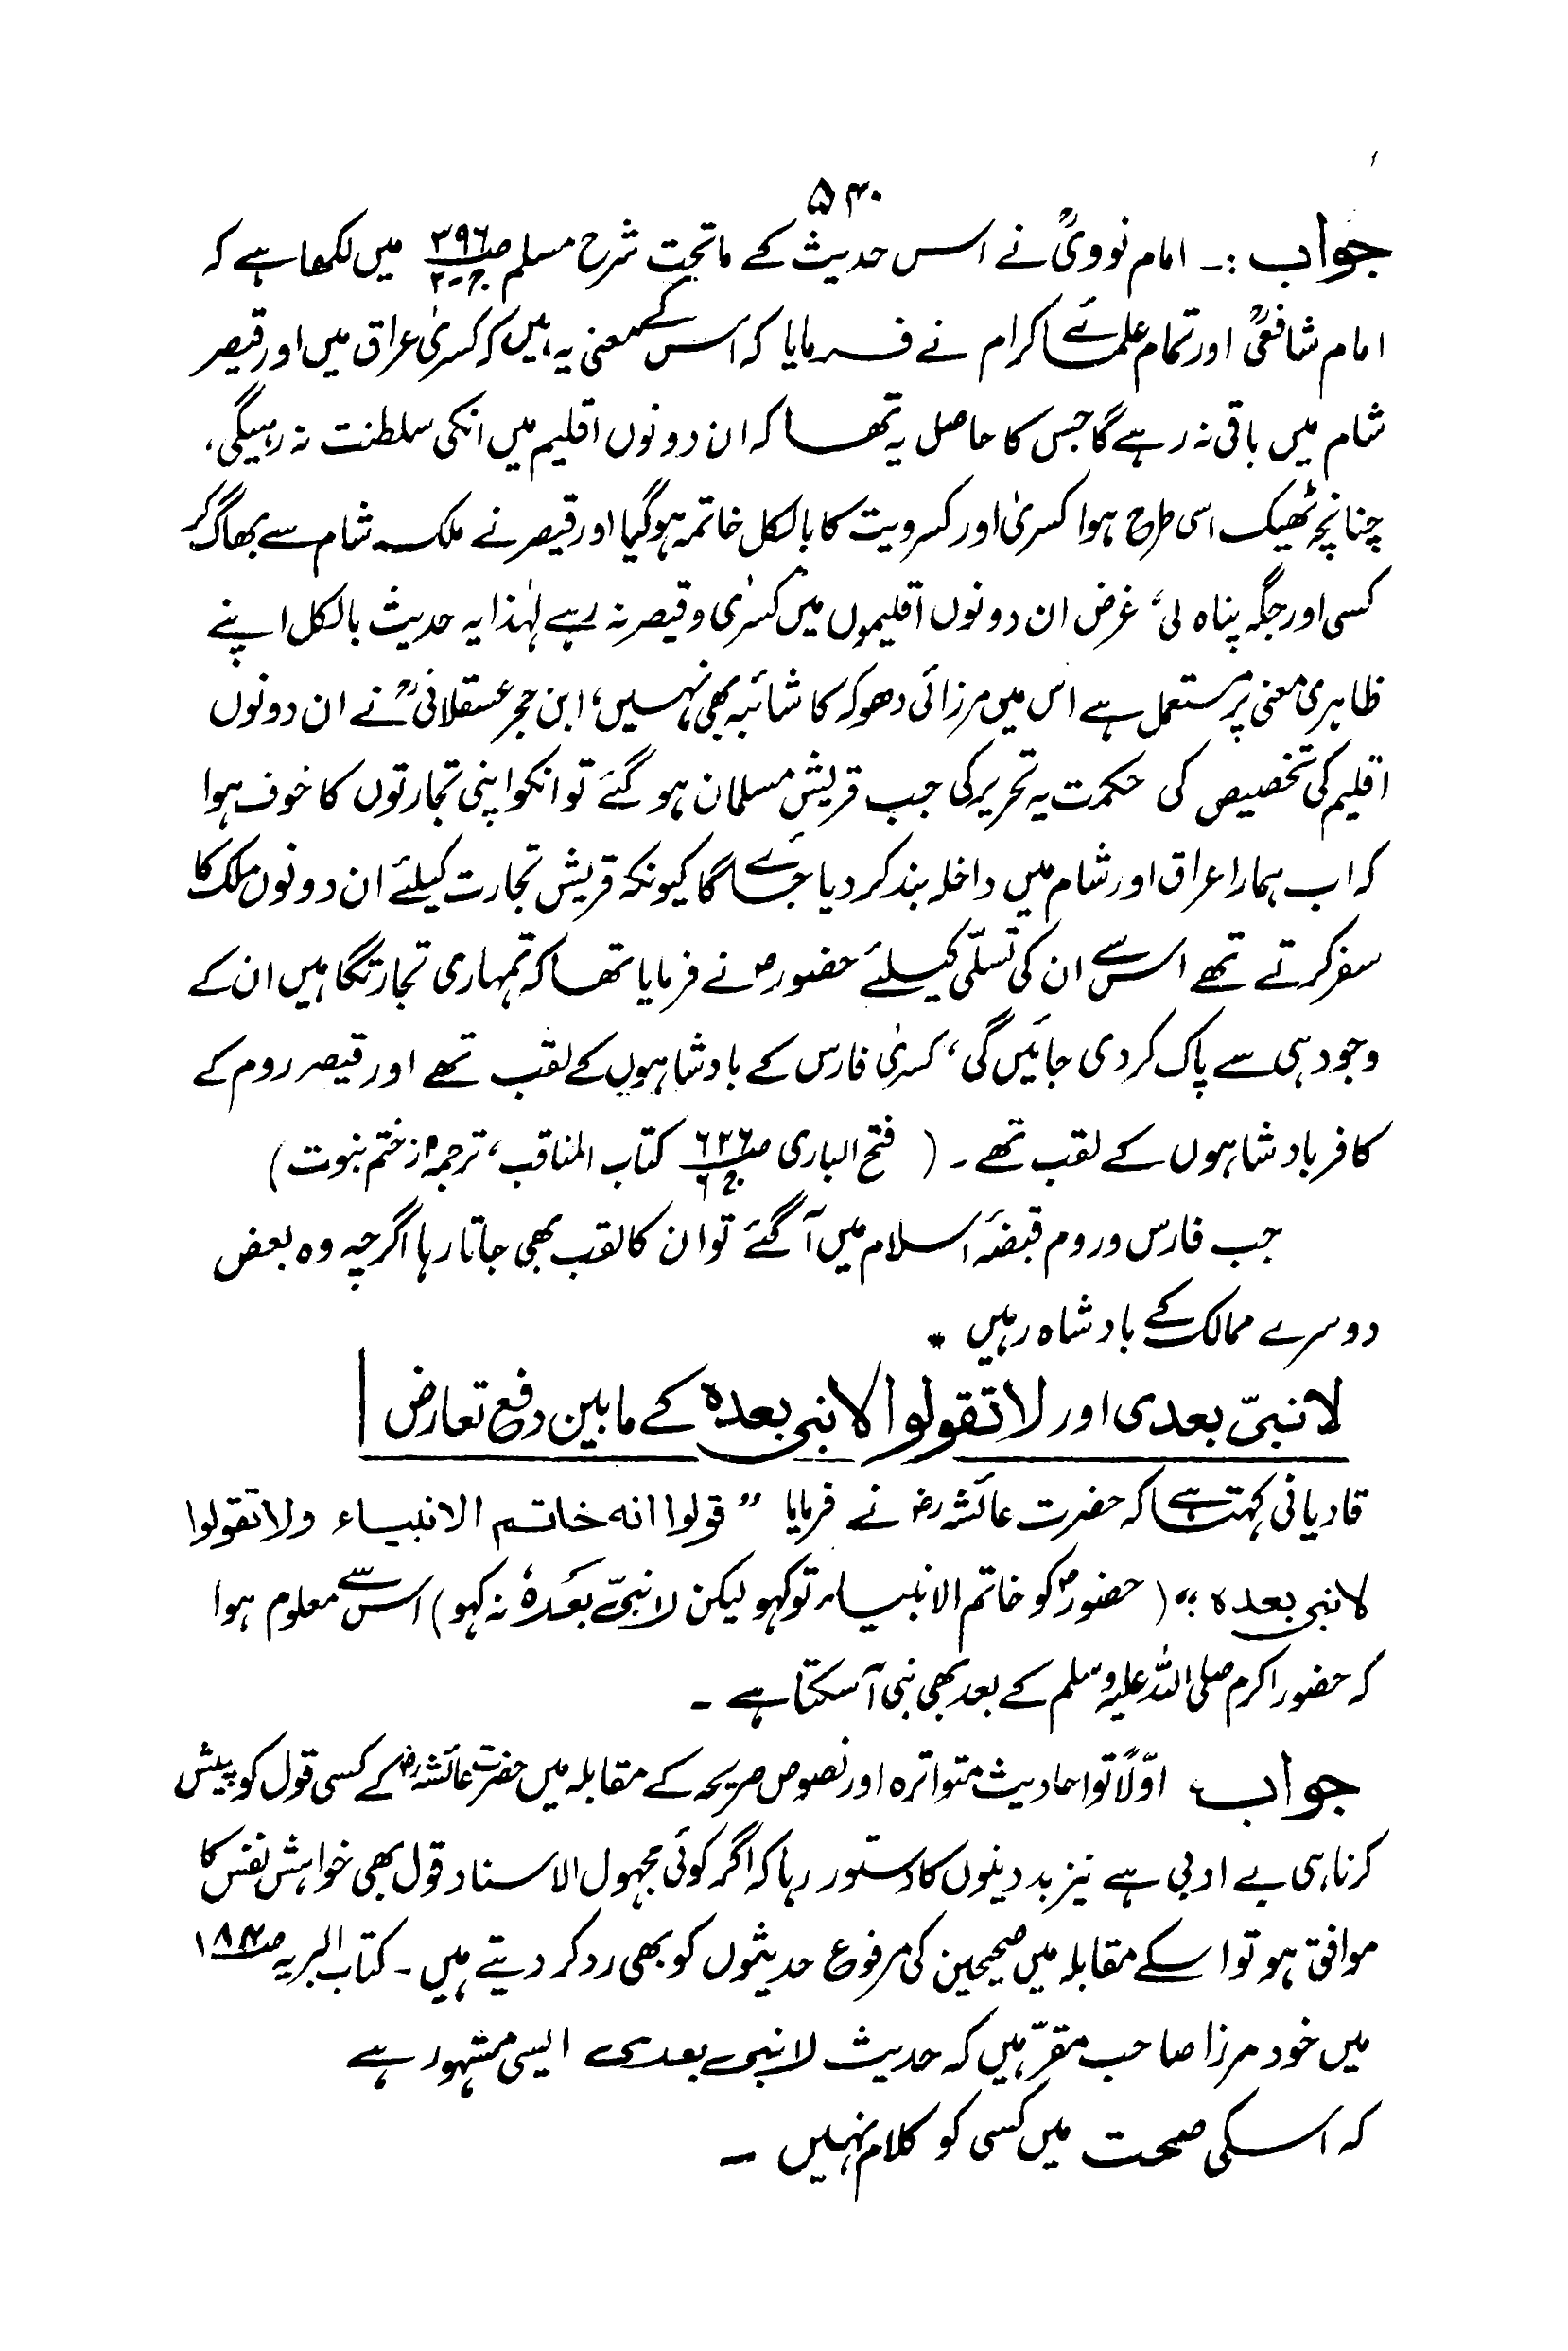 ۵۴۰
جواب :۔ امام نوویؒ نے اس حدیث کے ماتحت شرح مسلم ص۳۹۶ ج۲ میں لکھا ہے کہ
امام شافعیؒ اور تمام علمائے کرام نے فرمایا کہ اس کے معنی یہ ہیں کہ کسریٰ عراق میں اور قیصر
شام میں باقی نہ رہے گا جس کا حاصل یہ تھا کہ ان دونوں اقلیم میں انکی سلطنت نہ رہیگی،
چنانچہ ٹھیک اسی طرح ہوا کسریٰ اور کسرویت کا بالکل خاتمہ ہوگیا اور قیصر نے ملک شام سے بھاگ کر
کسی اور جگہ پناہ لی، غرض ان دونوں اقلیموں میں کسرٰی و قیصر نہ رہے لہٰذا یہ حدیث بالکل اپنے
ظاہری معنی پر مستعمل ہے اس میں مرزائی دھوکہ کا شائبہ بھی نہیں، ابن حجر عسقلانیؒ نے ان دونوں
اقلیم کی تخصیص کی حکمت یہ تحریر کی جب قریش مسلمان ہو گئے تو انکو اپنی تجارتوں کا خوف ہوا
کہ اب ہمارا عراق اور شام میں داخلہ بند کر دیا جائے گا کیونکہ قریش تجارت کیلئے ان دونوں ملک کا
سفر کرتے تھے اس سے ان کی تسلّی کیلئے حضورؐ نے فرمایا تھا کہ تمہاری تجارتگاہیں ان کے
وجود ہی سے پاک کردی جائیں گی، کسریٰ فارس کے بادشاہوں کے لقب تھے اور قیصر روم کے
کافر بادشاہوں کے لقب تھے ۔ ( فتح الباری ص۶۲۶ ج۶ کتاب المناقب، ترجمہ از ختم نبوت )
جب فارس و روم قبضۂ اسلام میں آگئے تو ان کا لقب بھی جاتا رہا اگرچہ وہ بعض
دوسرے ممالک کے بادشاہ رہیں *
لا نبیّ بعدی اور لا تقولوا لا نبی بعدہ کے مابین دفع تعارض
قادیانی کہتا ہے کہ حضرت عائشہؓ نے فرمایا ” قولوا انه خاتم الانبیاء ولا تقولوا
لا نبی بعده “ ( حضورؐ کو خاتم الانبیاء تو کہو لیکن لا نبیّ بَعدہٗ نہ کہو ) اس سے معلوم ہوا
کہ حضور اکرم صلی اللہ علیہ وسلم کے بعد بھی نبی آسکتا ہے ۔
جواب اوّلاً تو احادیث متواترہ اور نصوص صریحہ کے مقابلہ میں حضرت عائشہؓ کے کسی قول کو پیش
کرنا ہی بے ادبی ہے نیز بد دینوں کا دستور رہا کہ اگر کوئی مجہول الاسناد قول بھی خواہش نفس کا
موافق ہو تو اسکے مقابلہ میں صحیحین کی مرفوع حدیثوں کو بھی رد کر دیتے ہیں ۔ کتاب البریہ ص۱۸۴
میں خود مرزا صاحب مقرّ ہیں کہ حدیث لا نبی بعدی ایسی مشہور ہے
کہ اسکی صحت میں کسی کو کلام نہیں ۔